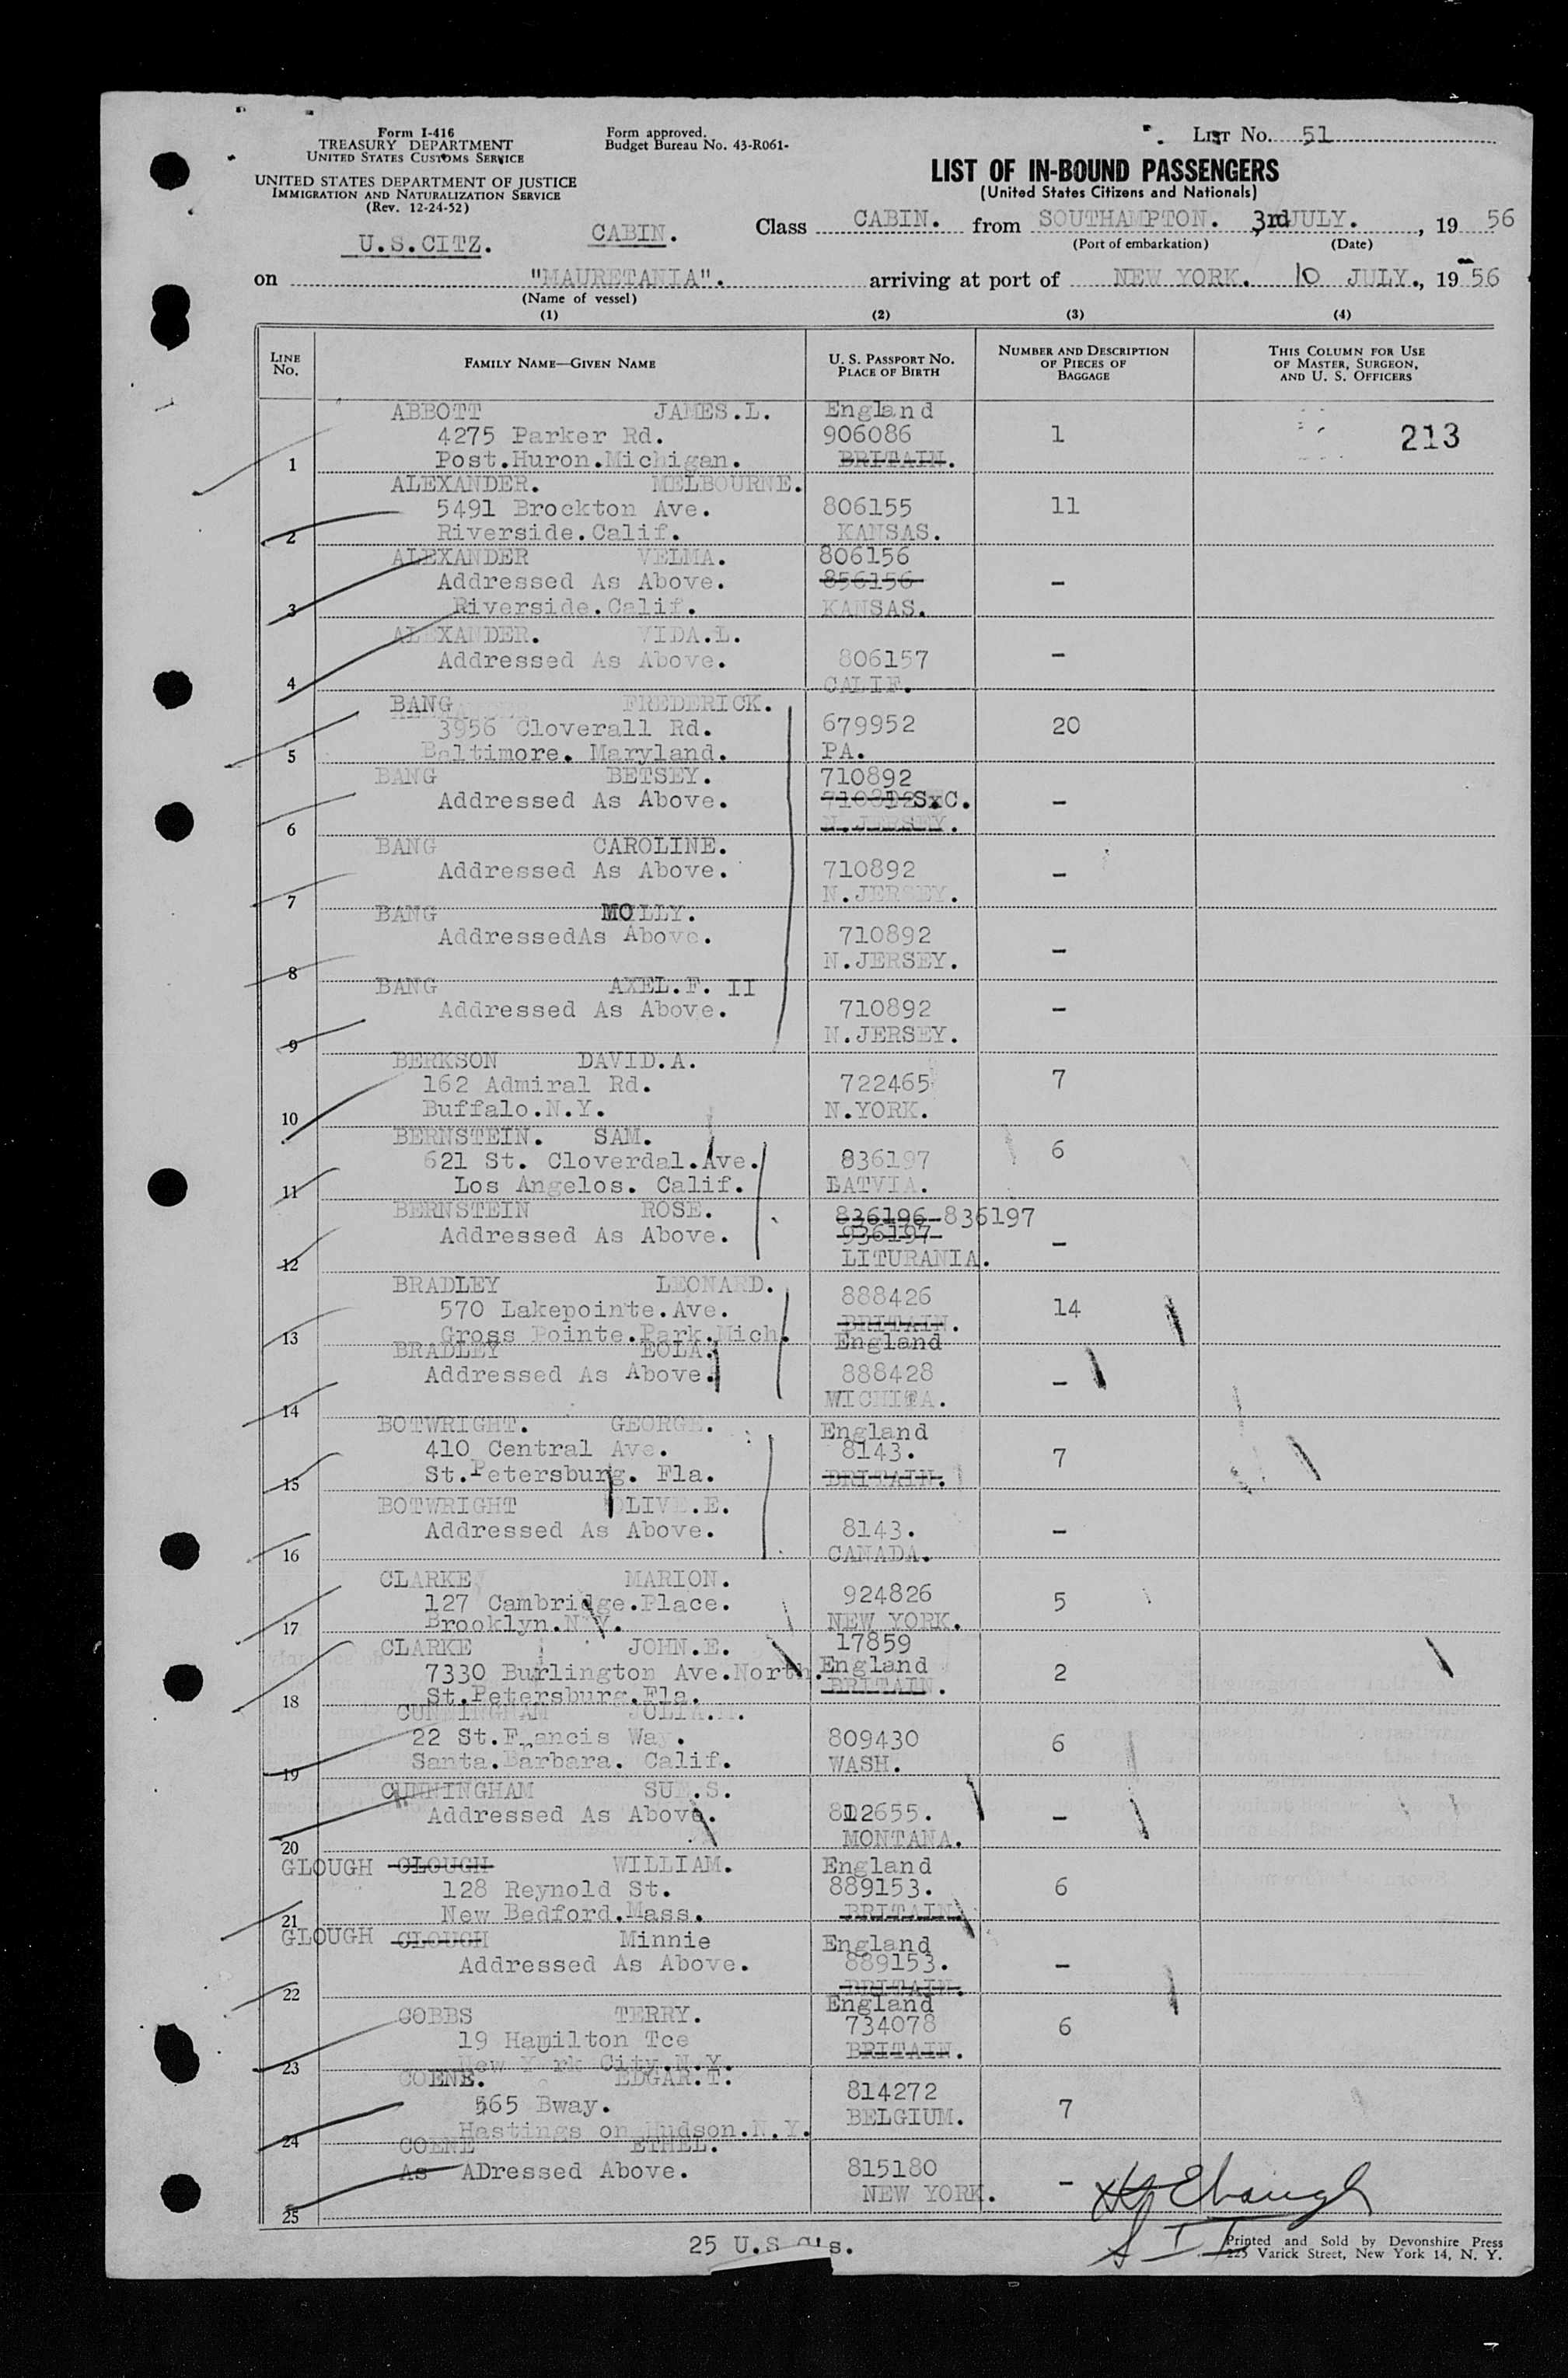 Form I-416
TREASURY DEPARTMENT
UNITED STATES CUSTOMS SERVICE
UNITED STATES DEPARTMENT OF JUSTICE
IMMIGRATION AND NATURALIZATION SERVICE
(Rev. 12-24-52)
Form approved.
Budget Bureau No. 43-R061-
LIST No. 51
LIST OF IN-BOUND PASSENGERS
(United States Citizens and Nationals)
U.S.CITZ. CABIN. Class CABIN. from SOUTHAMPTON. 3rd JULY., 19 56
(Port of embarkation) (Date)
on "MAURETANIA". arriving at port of NEW YORK. 10 JULY., 19 56
(Name of vessel)
(1) (2) (3) (4)
LINE No. FAMILY NAME—GIVEN NAME U. S. PASSPORT NO. PLACE OF BIRTH NUMBER AND DESCRIPTION OF PIECES OF BAGGAGE THIS COLUMN FOR USE OF MASTER, SURGEON, AND U. S. OFFICERS
ABBOTT JAMES.L. England
4275 Parker Rd. 906086 1 213
1 Post.Huron.Michigan. BRITAIN.
ALEXANDER. MELBOURNE.
5491 Brockton Ave. 806155 11
2 Riverside.Calif. KANSAS.
ALEXANDER VELMA. 806156
Addressed As Above. 856156 -
3 Riverside.Calif. KANSAS.
ALEXANDER. VIDA.L.
Addressed As Above. 806157 -
4 CALIF.
BANG FREDERICK.
3956 Cloverall Rd. 679952 20
5 Baltimore. Maryland. PA.
BANG BETSEY. 710892
Addressed As Above. 710892 SxC. -
6 N.JERSEY.
BANG CAROLINE.
Addressed As Above. 710892 -
7 N.JERSEY.
BANG MOLLY.
AddressedAs Above. 710892 -
8 N.JERSEY.
BANG AXEL.F. II
Addressed As Above. 710892 -
9 N.JERSEY.
BERKSON DAVID.A.
162 Admiral Rd. 722465 7
10 Buffalo.N.Y. N.YORK.
BERNSTEIN. SAM.
621 St. Cloverdal.Ave. 836197 6
11 Los Angelos. Calif. LATVIA.
BERNSTEIN ROSE. 836196 836197
Addressed As Above. 936197 -
12 LITURANIA.
BRADLEY LEONARD.
570 Lakepointe.Ave. 888426 14
13 Gross Pointe.Park.Mich. BRITAIN. England
BRADLEY EOLA.
Addressed As Above. 888428 -
14 WICHITA.
BOTWRIGHT. GEORGE. England
410 Central Ave. 8143. 7
15 St.Petersburg. Fla. BRITAIN.
BOTWRIGHT OLIVE.E.
Addressed As Above. 8143. -
16 CANADA.
CLARKE MARION.
127 Cambridge.Place. 924826 5
17 Brooklyn.N.Y. NEW YORK.
CLARKE JOHN.E. 17859
7330 Burlington Ave.North. England 2
18 St.Petersburg.Fla. BRITAIN.
CUNNINGHAM JULIA.
22 St.Francis Way. 809430 6
19 Santa.Barbara. Calif. WASH.
CUNNINGHAM SUE.S.
Addressed As Above. 812655. -
20 MONTANA.
GLOUGH CLOUGH WILLIAM. England
128 Reynold St. 889153. 6
21 New Bedford.Mass. BRITAIN.
GLOUGH CLOUGH Minnie England
Addressed As Above. 889153. -
22 BRITAIN.
COBBS TERRY. England
19 Hamilton Tce 734078 6
23 New York City.N.Y. BRITAIN.
COENE. EDGAR.T.
565 Bway. 814272 7
24 Hastings on Hudson.N.Y. BELGIUM.
COENE ETHEL.
As ADressed Above. 815180 -
25 NEW YORK.
25 U.S.C's.
Printed and Sold by Devonshire Press
225 Varick Street, New York 14, N. Y.